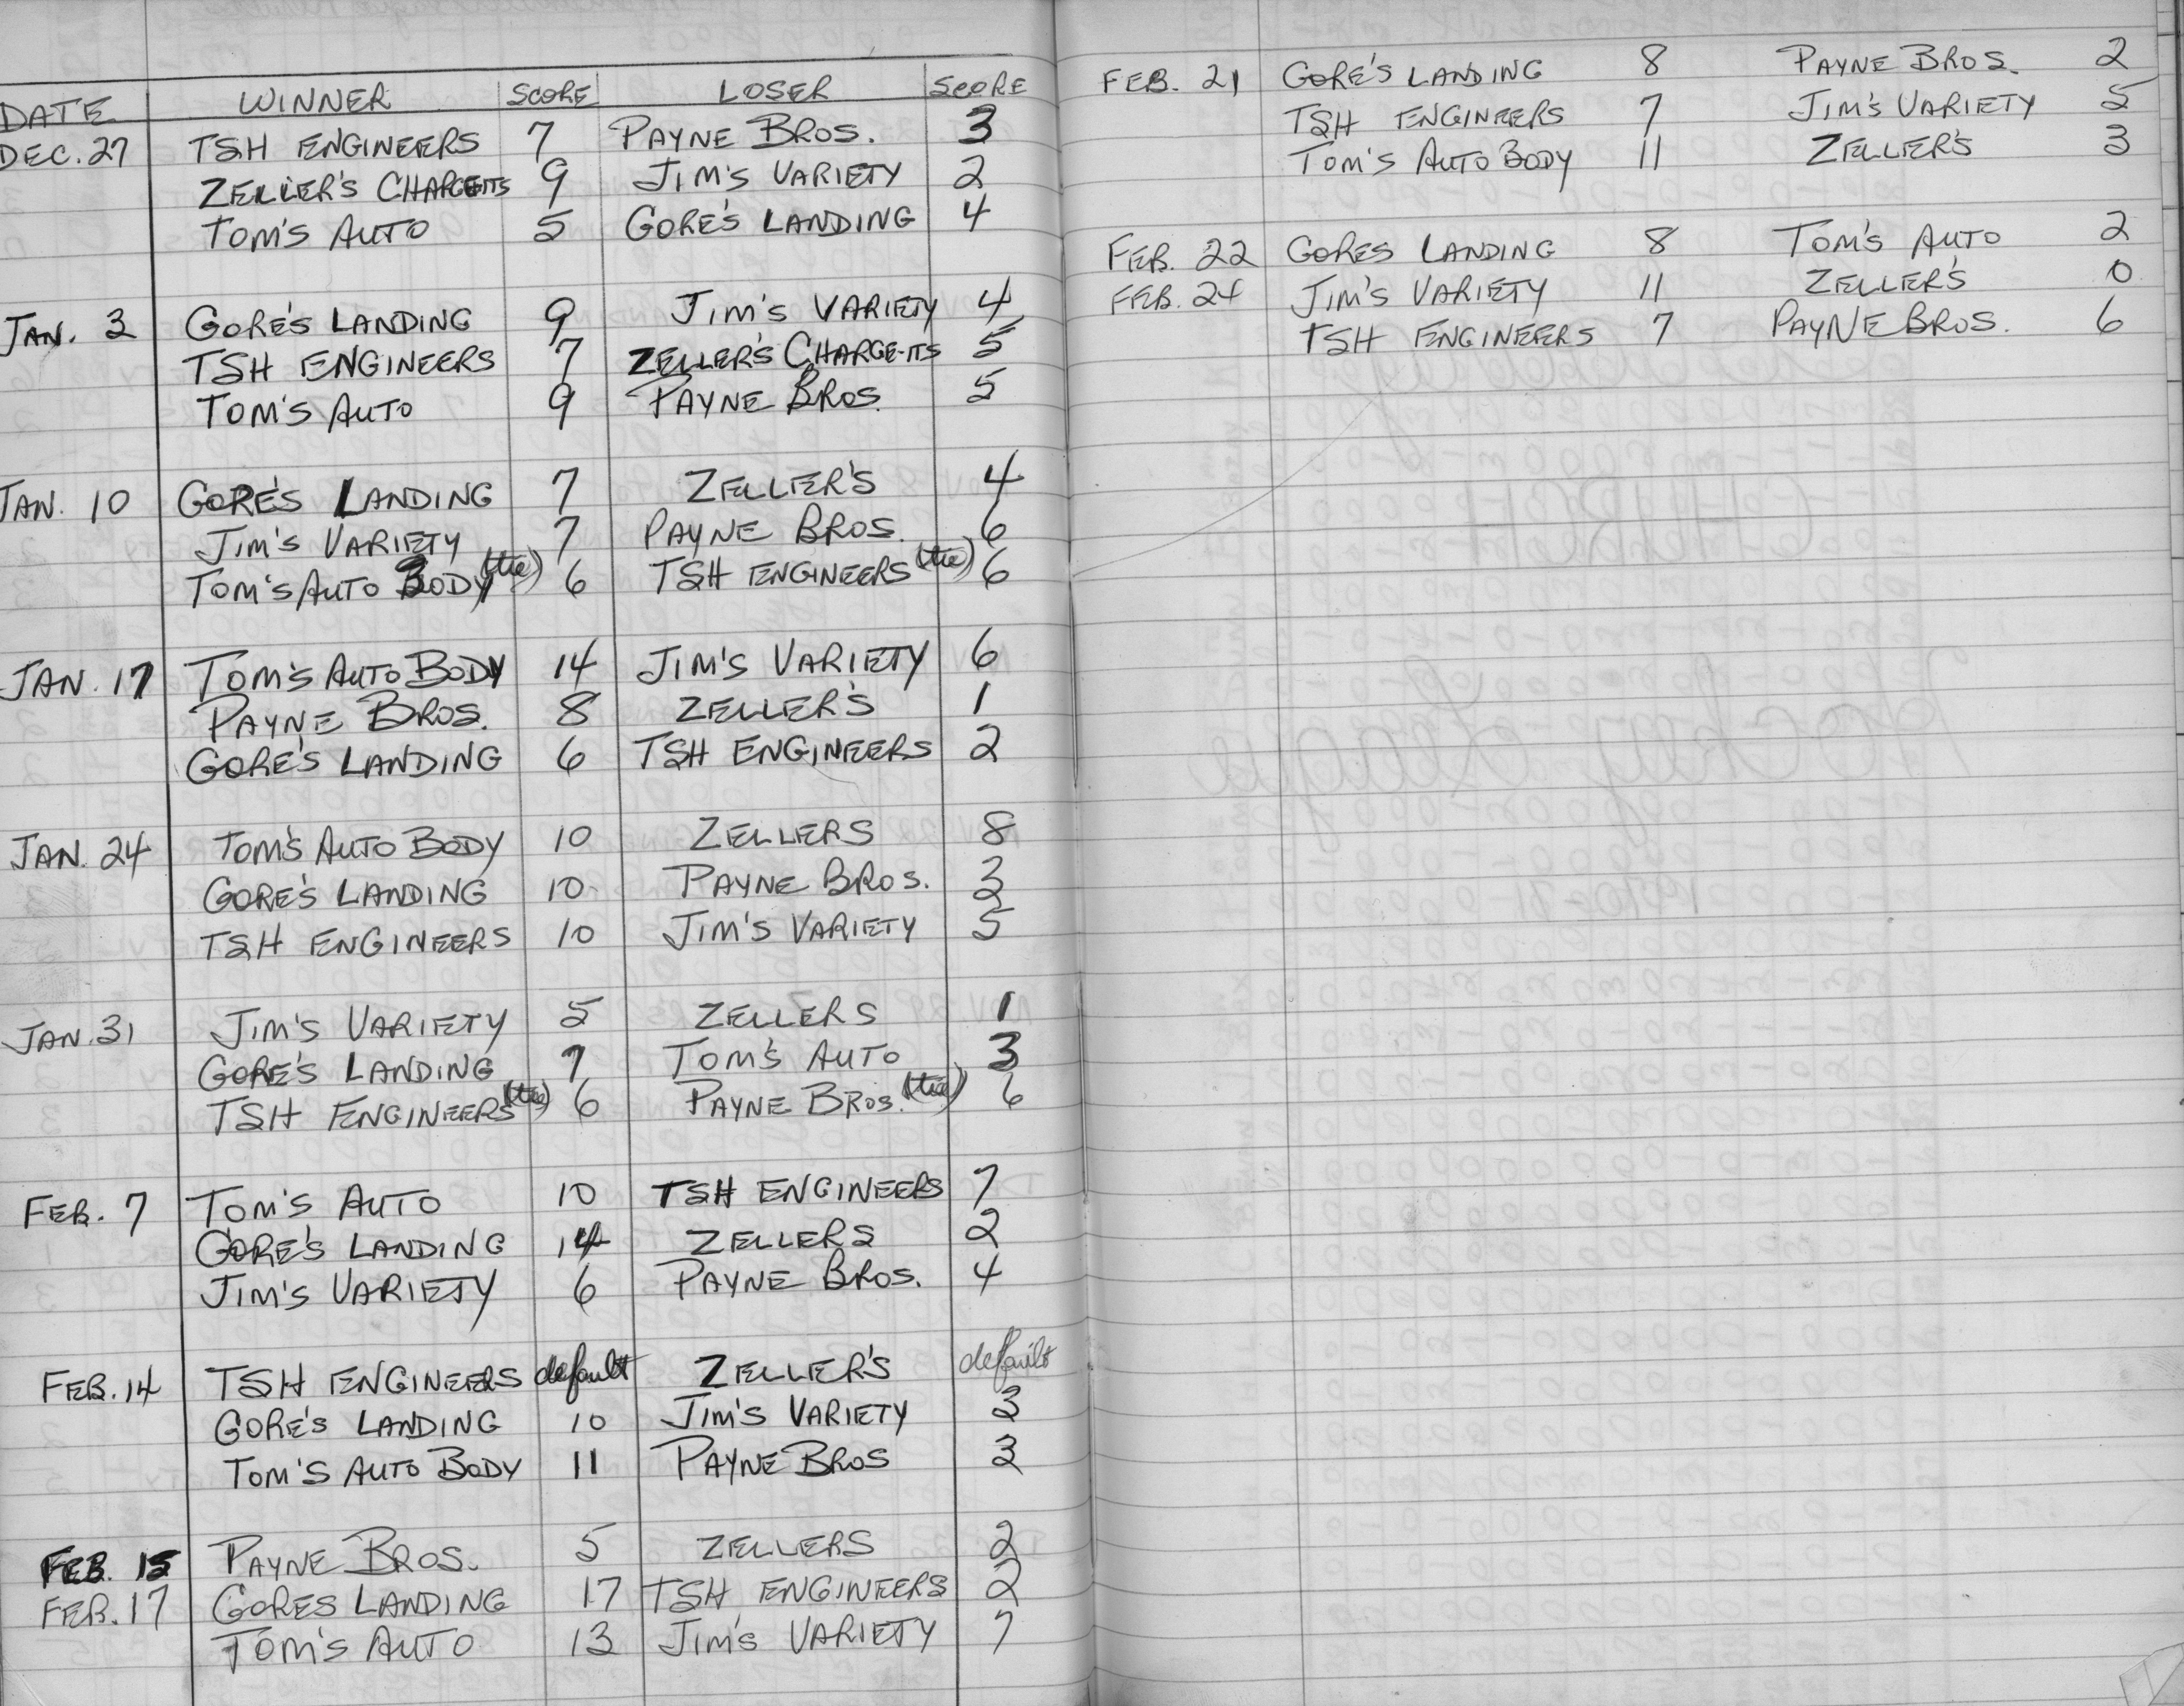 DATE WINNER SCORE LOSER SCORE
DEC. 27 TSH ENGINEERS 7 PAYNE BROS. 3
ZELLER'S CHARGE-ITS 9 JIM'S VARIETY 2
TOM'S AUTO 5 GORE'S LANDING 4
JAN. 3 GORE'S LANDING 9 JIM'S VARIETY 4
TSH ENGINEERS 7 ZELLER'S CHARGE-ITS 5
TOM'S AUTO 9 PAYNE BROS. 5
JAN. 10 GORE'S LANDING 7 ZELLER'S 4
JIM'S VARIETY 7 PAYNE BROS. 6
TOM'S AUTO BODY (tie) 6 TSH ENGINEERS (tie) 6
JAN. 17 TOM'S AUTO BODY 14 JIM'S VARIETY 6
PAYNE BROS. 8 ZELLER'S 1
GORE'S LANDING 6 TSH ENGINEERS 2
JAN. 24 TOM'S AUTO BODY 10 ZELLERS 8
GORE'S LANDING 10 PAYNE BROS. 3
TSH ENGINEERS 10 JIM'S VARIETY 5
JAN. 31 JIM'S VARIETY 5 ZELLERS 1
GORE'S LANDING 7 TOM'S AUTO 3
TSH ENGINEERS (tie) 6 PAYNE BROS. (tie) 6
FEB. 7 TOM'S AUTO 10 TSH ENGINEERS 7
GORE'S LANDING 14 ZELLERS 2
JIM'S VARIETY 6 PAYNE BROS. 4
FEB. 14 TSH ENGINEERS default ZELLER'S default
GORE'S LANDING 10 JIM'S VARIETY 3
TOM'S AUTO BODY 11 PAYNE BROS 3
FEB. 15 PAYNE BROS. 5 ZELLERS 2
FEB. 17 GORES LANDING 17 TSH ENGINEERS 2
TOM'S AUTO 13 JIM'S VARIETY 7
FEB. 21 GORE'S LANDING 8 PAYNE BROS. 2
TSH ENGINEERS 7 JIM'S VARIETY 5
TOM'S AUTO BODY 11 ZELLER'S 3
FEB. 22 GORES LANDING 8 TOM'S AUTO 2
FEB. 24 JIM'S VARIETY 11 ZELLER'S 0
TSH ENGINEERS 7 PAYNE BROS. 6